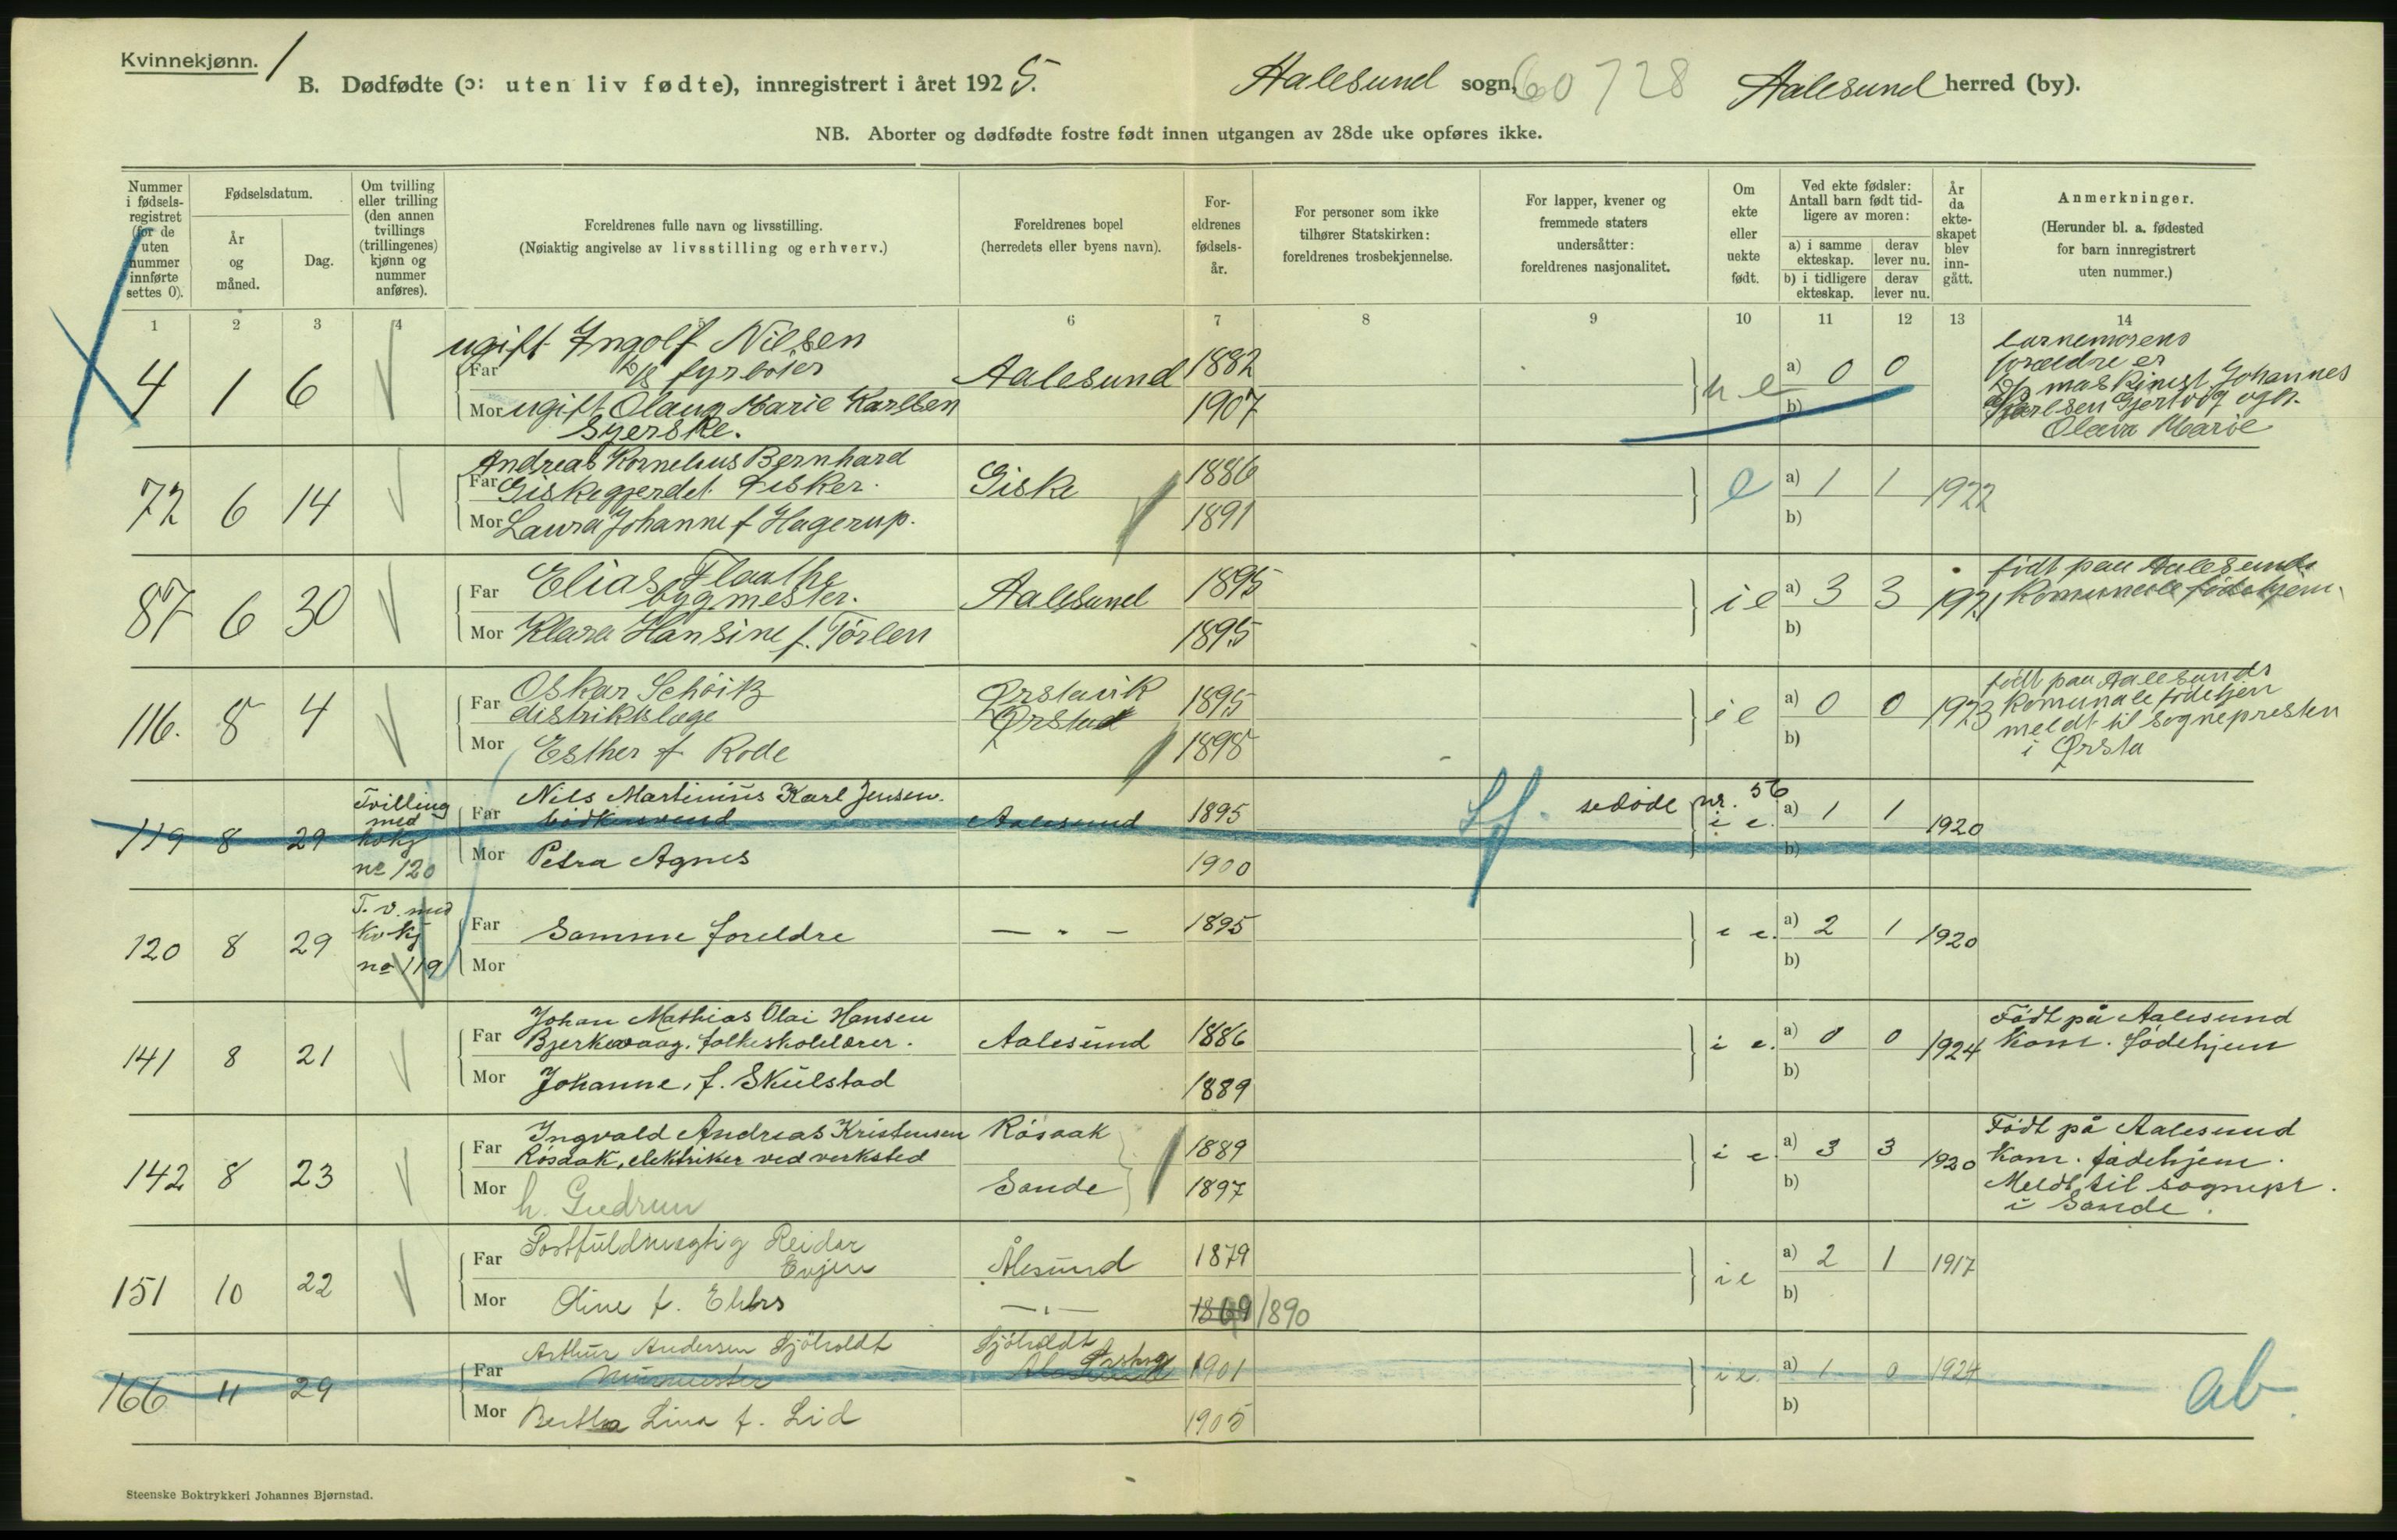 Kvinnekjønn. 1
B. Dødfødte (ɔ: uten liv fødte), innregistrert i året 1925. Aalesund sogn, 60 728 Aalesund herred (by).
NB. Aborter og dødfødte fostre født innen utgangen av 28de uke opføres ikke.
Nummer i fødsels-registret (for de uten nummer innførte settes 0).
Fødselsdatum.
År og måned.
Dag.
Om tvilling eller trilling (den annen tvillings (trillingenes) kjønn og nummer anføres).
Foreldrenes fulle navn og livsstilling.
(Nøiaktig angivelse av livsstilling og erhverv.)
Foreldrenes bopel
(herredets eller byens navn).
For-eldrenes fødsels-år.
For personer som ikke tilhører Statskirken: foreldrenes trosbekjennelse.
For lapper, kvener og fremmede staters undersåtter: foreldrenes nasjonalitet.
Om ekte eller uekte født.
Ved ekte fødsler: Antall barn født tid-ligere av moren:
a) i samme ekteskap.
derav lever nu.
b) i tidligere ekteskap.
derav lever nu.
År da ekte-skapet blev inn-gått.
Anmerkninger.
(Herunder bl. a. fødested for barn innregistrert uten nummer.)
1 2 3 4 5 6 7 8 9 10 11 12 13 14
ugift Ingolf Nilsen
4 1 6 Far fyrbøter Aalesund 1882 u e a) 0 0
Mor ugift Olaug Marie Karlsen 1907 b)
Syerske.
barnemorens
forældre er
maskinist Johannes
Karlsen Gjertvåg ogh.
Olava Marie
Andreas Kornelius Bernhard
72 6 14 Far Giskegjerdet. Fisker. Giske 1886 e a) 1 1 1922
Mor Laura Johanne f Hagerup. 1891 b)
Elias Flaathe
87 6 30 Far bygmester. Aalesund 1895 i e a) 3 3 1921
Mor Klara Hansine f. Tørlen 1895 b)
født paa Aalesunds
Komunale fødehjem.
Oskar Schöitz Ørstavik
116. 8 4 Far distriktslæge Ørsta 1895 i e a) 0 0 1923
Mor Esther f Rode 1898 b)
født paa Aalesunds
Komunale fødehjem
meldt til sognepresten
i Ørsta
Tvilling med kvkj no 120
Nils Martinius Karl Jensen.
119 8 29 Far bödkersvend Aalesund 1895 se döde nr. 56 i e. a) 1 1 1920
Mor Petra Agnes 1900 b)
T. v. med Kv Kj no 119
120 8 29 Far Samme foreldre — " — 1895 i e. a) 2 1 1920
Mor b)
Johan Mathias Olai Hansen
141 8 21 Far Bjerkevaag, folkeskolelærer. Aalesund 1886 i e. a) 0 0 1924
Mor Johanne, f. Skulstad 1889 b)
Født på Aalesund
Kom. fødehjem
Ingvald Andreas Kristensen Råsaak
142 8 23 Far Råsaak, elektriker ved verksted 1889 i e. a) 3 3 1920
Mor h. Gudrun Sande 1897 b)
Født på Aalesund
Kom. fødehjem.
Meldt til sognepr.
i Sande.
Postfuldmægtig Reidar
151 10 22 Far Evjen Ålesund 1879 i e a) 2 1 1917
Mor Oline f. Ehlers — " — 1890 b)
Arthur Andersen Sjöholdt Sjöholdt
166 11 29 Far Murmester Ørskog 1901 i e. a) 1 0 1924
Mor Bertha Lina f. Lid 1905 b)
ab.
Steenske Boktrykkeri Johannes Bjørnstad.